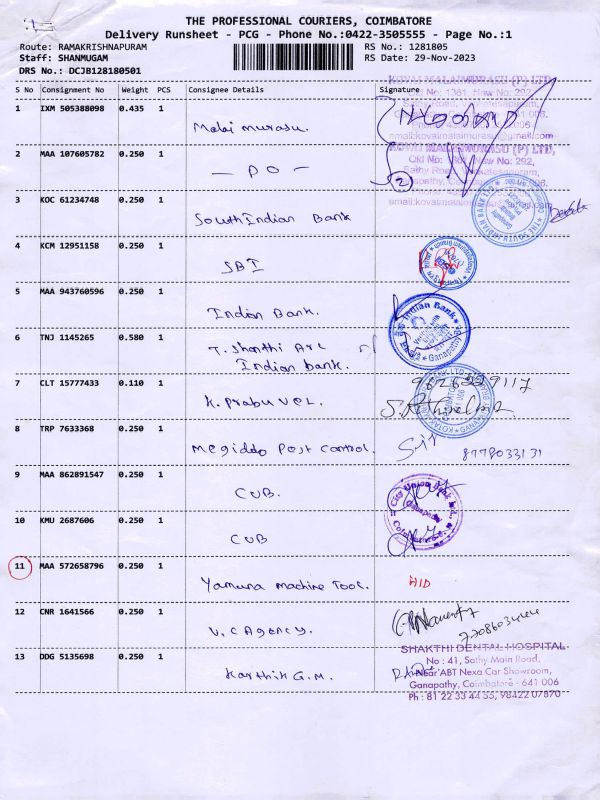 THE PROFESSIONAL COURIERS, COIMBATORE
Delivery Runsheet - PCG - Phone No.:0422-3505555 - Page No.:1
Route: RAMAKRISHNAPURAM RS No.: 1281805
Staff: SHANMUGAM RS Date: 29-Nov-2023
DRS No.: DCJB128180501
S No Consignment No Weight PCS Consignee Details Signature
KOVAI MALAIMURASU (P) LTD,
Old No: 1361, New No: 292,
1 IXM 505388098 0.435 1
Malai murasu.
email:kovaimalaimurasu@gmail.com
KOVAI MALAIMURASU (P) LTD,
2 MAA 107605782 0.250 1
Old No: 1361, New No: 292,
- PO -
2
3 KOC 61234748 0.250 1
South Indian Bank
4 KCM 12951158 0.250 1
SBI
5 MAA 943760596 0.250 1
Indian Bank.
Indian Bank
Ganapathy
6 TNJ 1145265 0.580 1
T. Shanthi ArL
Indian bank.
7 CLT 15777433 0.110 1
K. Prabuvel.
8 TRP 7633368 0.250 1
Megiddo Post Control.
9 MAA 862891547 0.250 1
CUB.
City Union Bank Ltd.,
Ganapathy
10 KMU 2687606 0.250 1
CUB
11 MAA 572658796 0.250 1
Yamuna machine Tool. HID
12 CNR 1641566 0.250 1
V.C Agency.
13 DDG 5135698 0.250 1
Karthik G.M.
SHAKTHI DENTAL HOSPITAL
No : 41, Sathy Main Road,
Near ABT Nexa Car Showroom,
Ganapathy, Coimbatore - 641 006
Ph : 81 22 33 44 55, 98422 07870